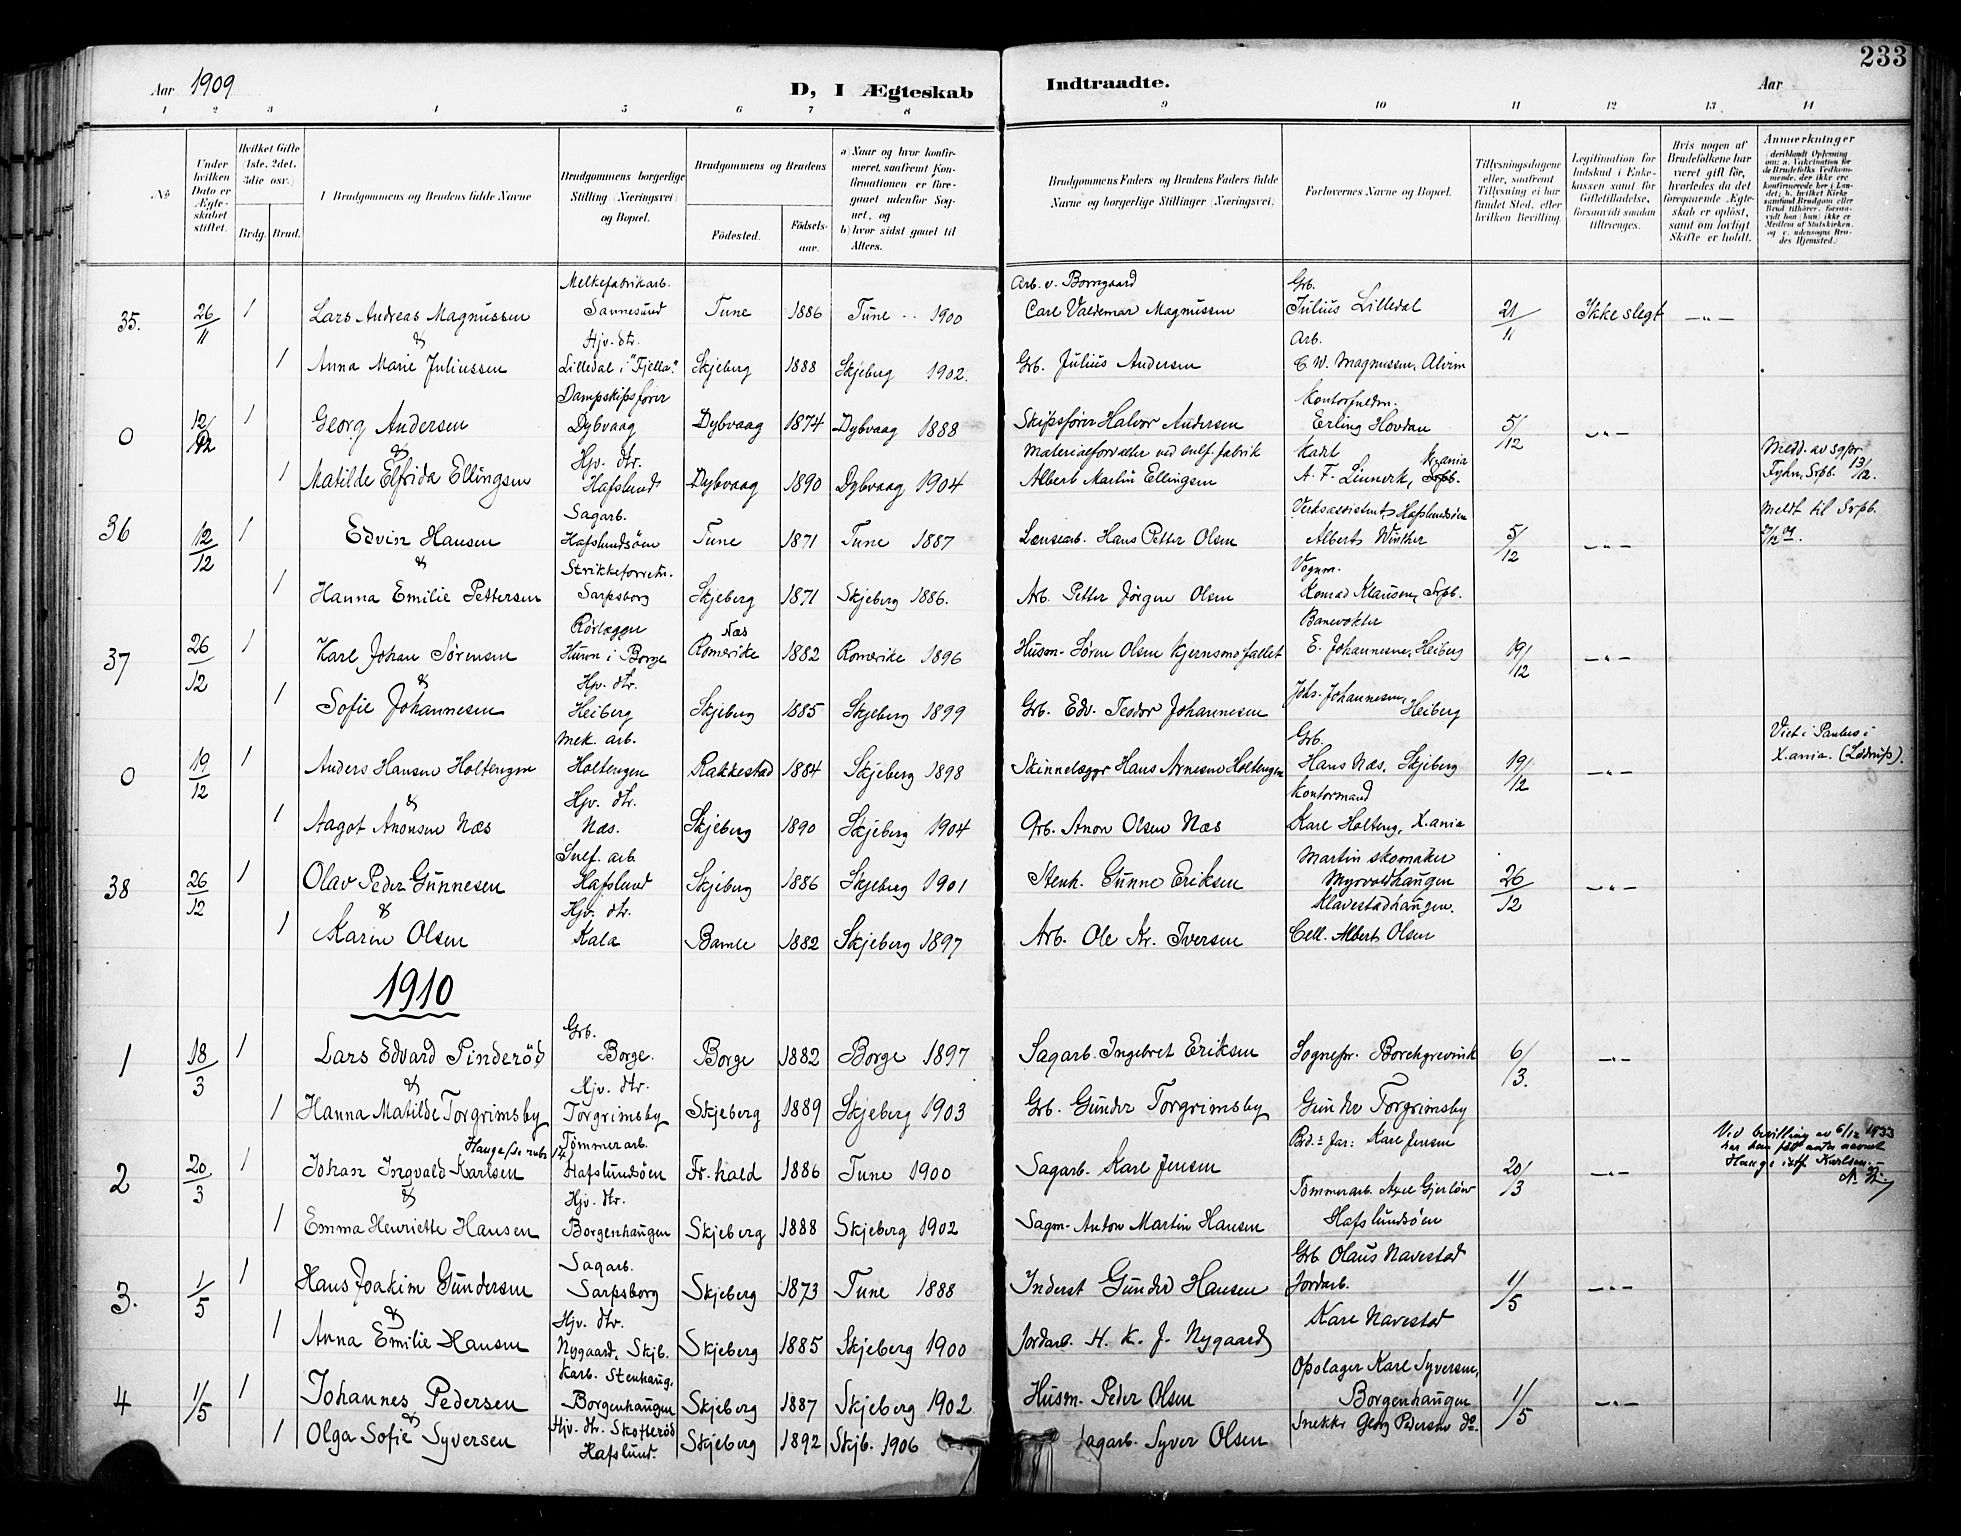 233
Aar 1909
D, I Ægteskab Indtraadte.
Aar
1 2 3 4 5 6 7 8 9 10 11 12 13 14
No.
Under hvilken Dato er Ægteskabet stiftet.
Hvilket Gifte (1ste, 2det, 3die osv.)
Brdg. Brud.
Brudgommens og Brudens fulde Navne
Brudgommens borgerlige Stilling (Næringsvei) og Bopæl.
Brudgommens og Brudens
Fødested.
Fødselsaar.
a) Naar og hvor konfirmeret, saafremt Konfirmationen er foregaaet udenfor Sognet, og
b) hvor sidst gaaet til Alters.
Brudgommens Faders og Brudens Faders fulde Navne og borgerlige Stillinger (Næringsvei.
Forlovernes Navne og Bopæl.
Tillysningsdagene eller, saafremt Tillysning ei har fundet Sted, efter hvilken Bevilling.
Legitimation for Indskud i Enkekassen samt for Giftetilladelse, forsaavidt saadan tiltrænges.
Hvis nogen af Brudefolkene har været gift før, hvorledes da det foregaaende Ægteskab er opløst, samt om lovligt Skifte er holdt.
Anmerkninger
(deriblandt Oplysning om: a. Vakcination for de Brudefolks Vedkommende, der ikke ere konfirmerede her i Landet; b. hvilket Kirkesamfund Brudgom eller Brud tilhører, forsaavidt han (hun) ikke er Medlem af Statskirken, og c. udensogns Brudes Hjemsted.)
Melkefabrikarb. Arb. v. Borregaard Grb.
35. 26/11 1 Lars Andreas Magnussen Sannesund Tune 1886 Tune 1900 Carl Valdemar Magnussen Julius Lilledal 21/11 Ikke slegt -"-
& Hjv. dtr. Arb.
1 Anna Marie Juliussen Lilledal i "Fjella" Skjeberg 1888 Skjeberg 1902. Grb. Julius Andersen C. W. Magnussen, Alvim
Dampskipsfører Kontorfuldm.
0 12/12 1 Georg Andersen Dybvaag Dybvaag 1874 Dybvaag 1888 Skipsfører Halvor Andersen Erling Hovdan 5/12 -"-
& Hjv. dtr. Materialforvalter ved sulf. fabrik Meld. av sgpr
1 Matilde Elfrida Ellingsen Hafslund Dybvaag 1890 Dybvaag 1904 Albert Martin Ellingsen A. F. Linnerk, Krania Srpb. 13/12.
Sagarb. Verksassistent, Hafslundsøen Meldt til Srpb.
36 12/12 1 Edvin Hansen Hafslundsøen Tune 1871 Tune 1887 Lænsearb. Hans Petter Olsen Albert Winther 5/12 -"-
& Strikkeforretn. Vognm.
1 Hanna Emilie Pettersen Sarpsborg Skjeberg 1871 Skjeberg 1886. Arb. Petter Jørgen Olsen Konrad Klausen, Srpb.
Rørlægger Næs Banevokter
37 26/12 1 Karl Johan Sørensen Hunn i Borge Romerike 1882 Romerike 1896 Husm. Søren Olsen Kjernsmofallet E. Johannesen, Heiberg 19/12 -"-
& Hjv. dtr.
1 Sofie Johannesen Heiberg Skjeberg 1885 Skjeberg 1899 Grb. Edv. Teodor Johannesen Johs. Johannesen, Heiberg
Mek. arb. Grb. Viet i Paulus i
0 19/12 1 Anders Hansen Holtengen Holtengen Rakkestad 1884 Skjeberg 1898 Skinnelægger Hans Arnesen Holtengen Hans Næs, Skjeberg 19/12 -"- X.ania. (Lødrup).
& Hjv. dtr. Kontormand
1 Aagot Anonsen Næs Næs. Skjeberg 1890 Skjeberg 1904 Grb. Anon Olsen Næs Karl Holteng, X.ania
Sulf. arb. Martin skomaker
38 26/12 1 Olav Peder Gunnesen Hafslund Skjeberg 1886 Skjeberg 1901 Stenh. Gunne Eriksen Myrvoldhaugen 26/12 -"-
& Hjv. dtr. Klavestadhaugen.
1 Karin Olsen Kala Bamle 1882 Skjeberg 1897 Arb. Ole Kr. Iversen Cell. Albert Olsen
1910
Grb.
1 18/3 1 Lars Edvard Pinderød Borge. Borge 1882 Borge 1897 Sagarb. Ingebret Eriksen Sognepr. Borchgrevink 6/3. -"-
& Hjv. dtr.
1 Hanna Matilde Torgrimsby Torgrimsby Skjeberg 1889 Skjeberg 1903 Grb. Gunder Torgrimsby Gunder Torgrimsby
Hauge/se rubr 14 Tømmerarb. Brd.s far: Karl Jensen Ved bevilling av 6/12 1933
2 20/3 1 Johan Ingvald Karlsen Hafslundsøen Fr.hald 1886 Tune 1900 Sagarb. Karl Jensen 20/3 -"- har han fått anta navnet Hauge istf. Karlsen.
& Hjv. dtr. Tømmerarb. Axel Gjerløw
1 Emma Henriette Hansen Borgenhaugen Skjeberg 1888 Skjeberg 1902 Sagm. Anton Martin Hansen Hafslundsøen
Sagarb. Grb Olaus Navestad
3. 1/5 1 Hans Joakim Gundersen Sarpsborg Skjeberg 1873 Tune 1888 Inderst Gunder Hansen Jordarb. 1/5 -"-
& Hjv. dtr. Karl Navestad
1 Anna Emilie Hansen Nygaard, Skjb. Skjeberg 1885 Skjeberg 1900 Jordarb. H. K. J. Nygaard
Karb. Stenhaug. Opslager Karl Syversen,
4 1/5 1 Johannes Pedersen Borgenhaugen Skjeberg 1887 Skjeberg 1902 Husm. Peder Olsen Borgenhaugen 1/5 -"-
& Hjv. dtr. Skotterød Snekker Georg Pedersen do.
1 Olga Sofie Syversen Hafslund. Skjeberg 1892 Skjb. 1906 Sagarb. Syver Olsen